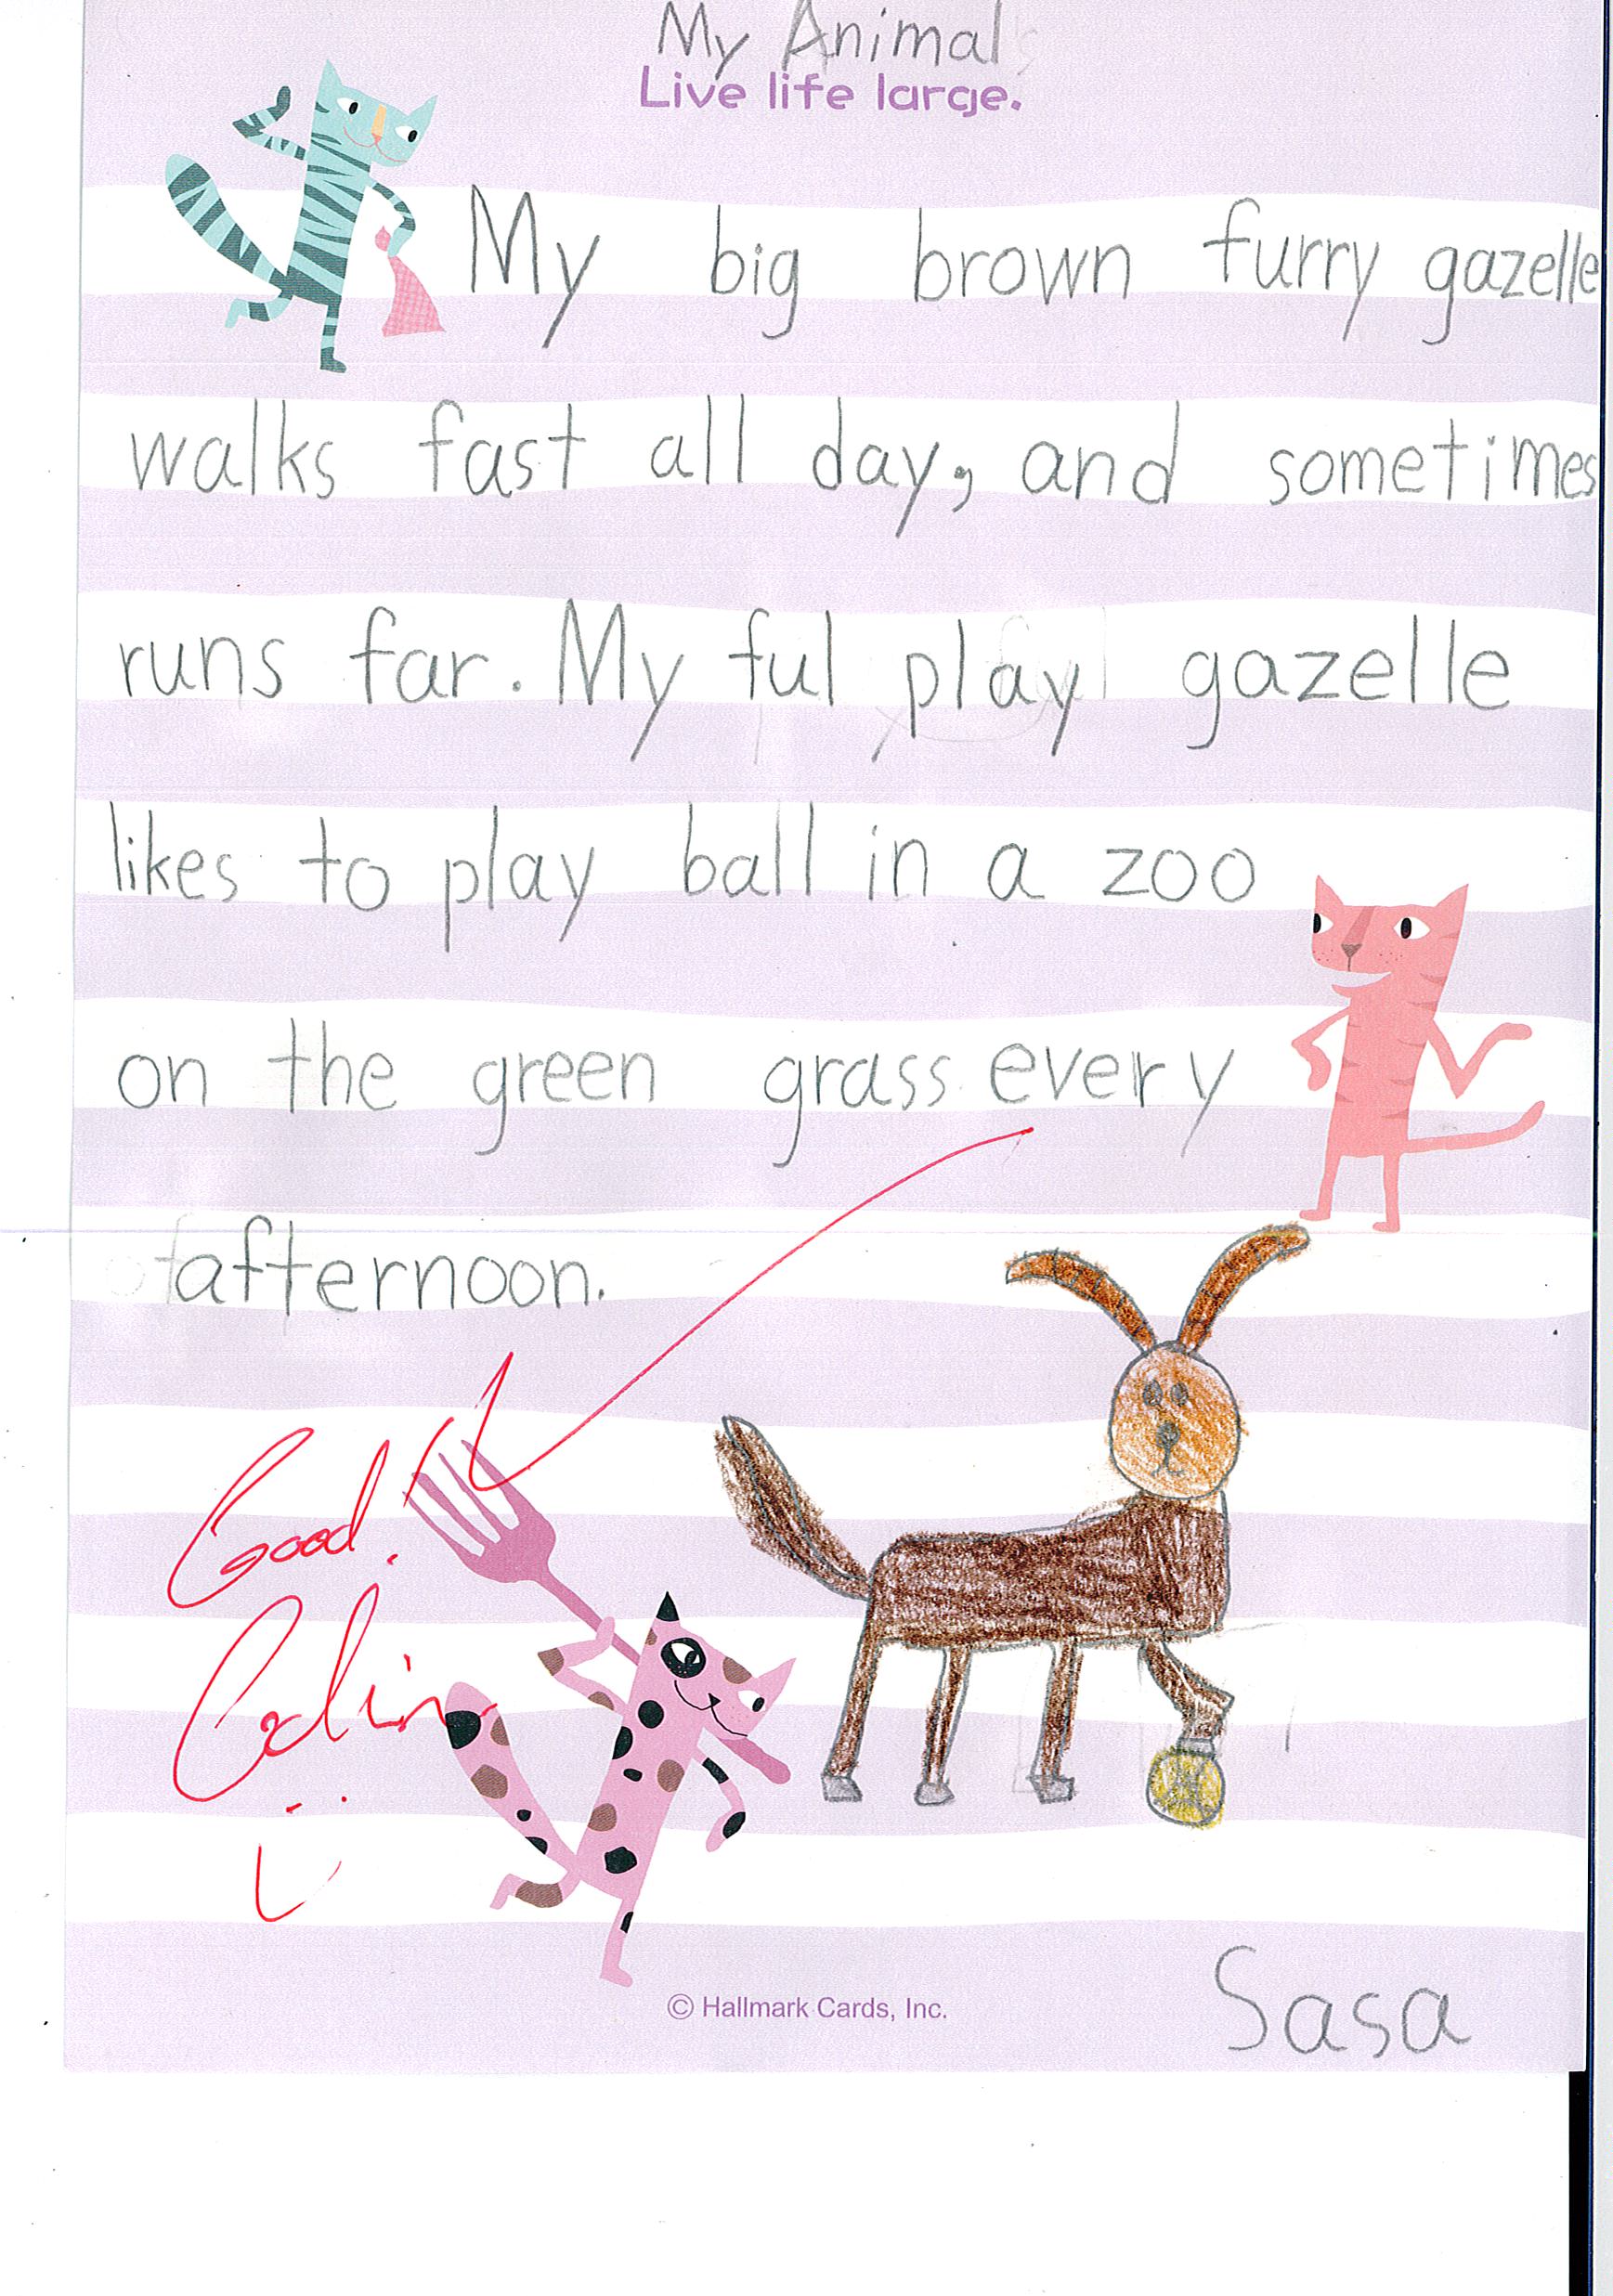 My Animal
Live life large.
My big brown furry gazelle
walks fast all day, and sometimes
runs far. My ful play gazelle
likes to play ball in a zoo
on the green grass every
afternoon.
Good.
Colin
© Hallmark Cards, Inc.
Sasa